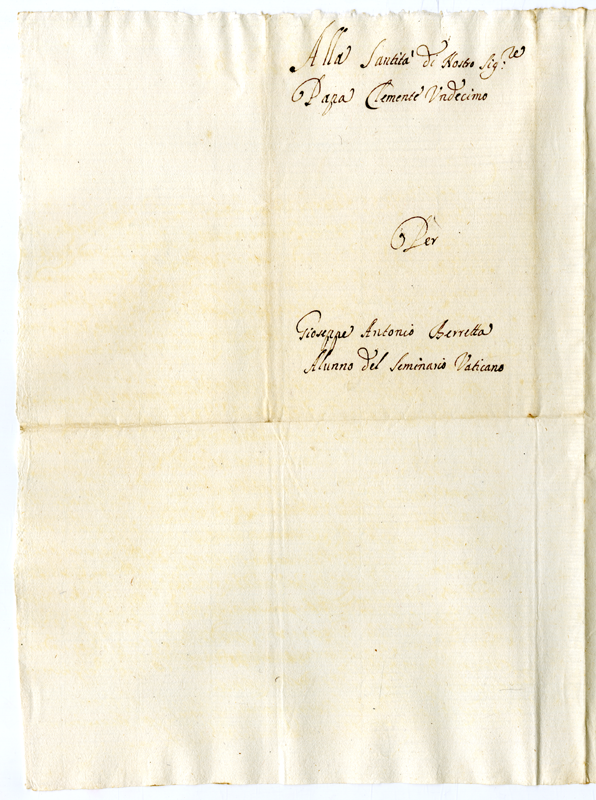 Alla Santità di Nostro Sig.re
Papa Clemente Undecimo
Per
Gioseppe Antonio Berretta
Alunno del Seminario Vaticano